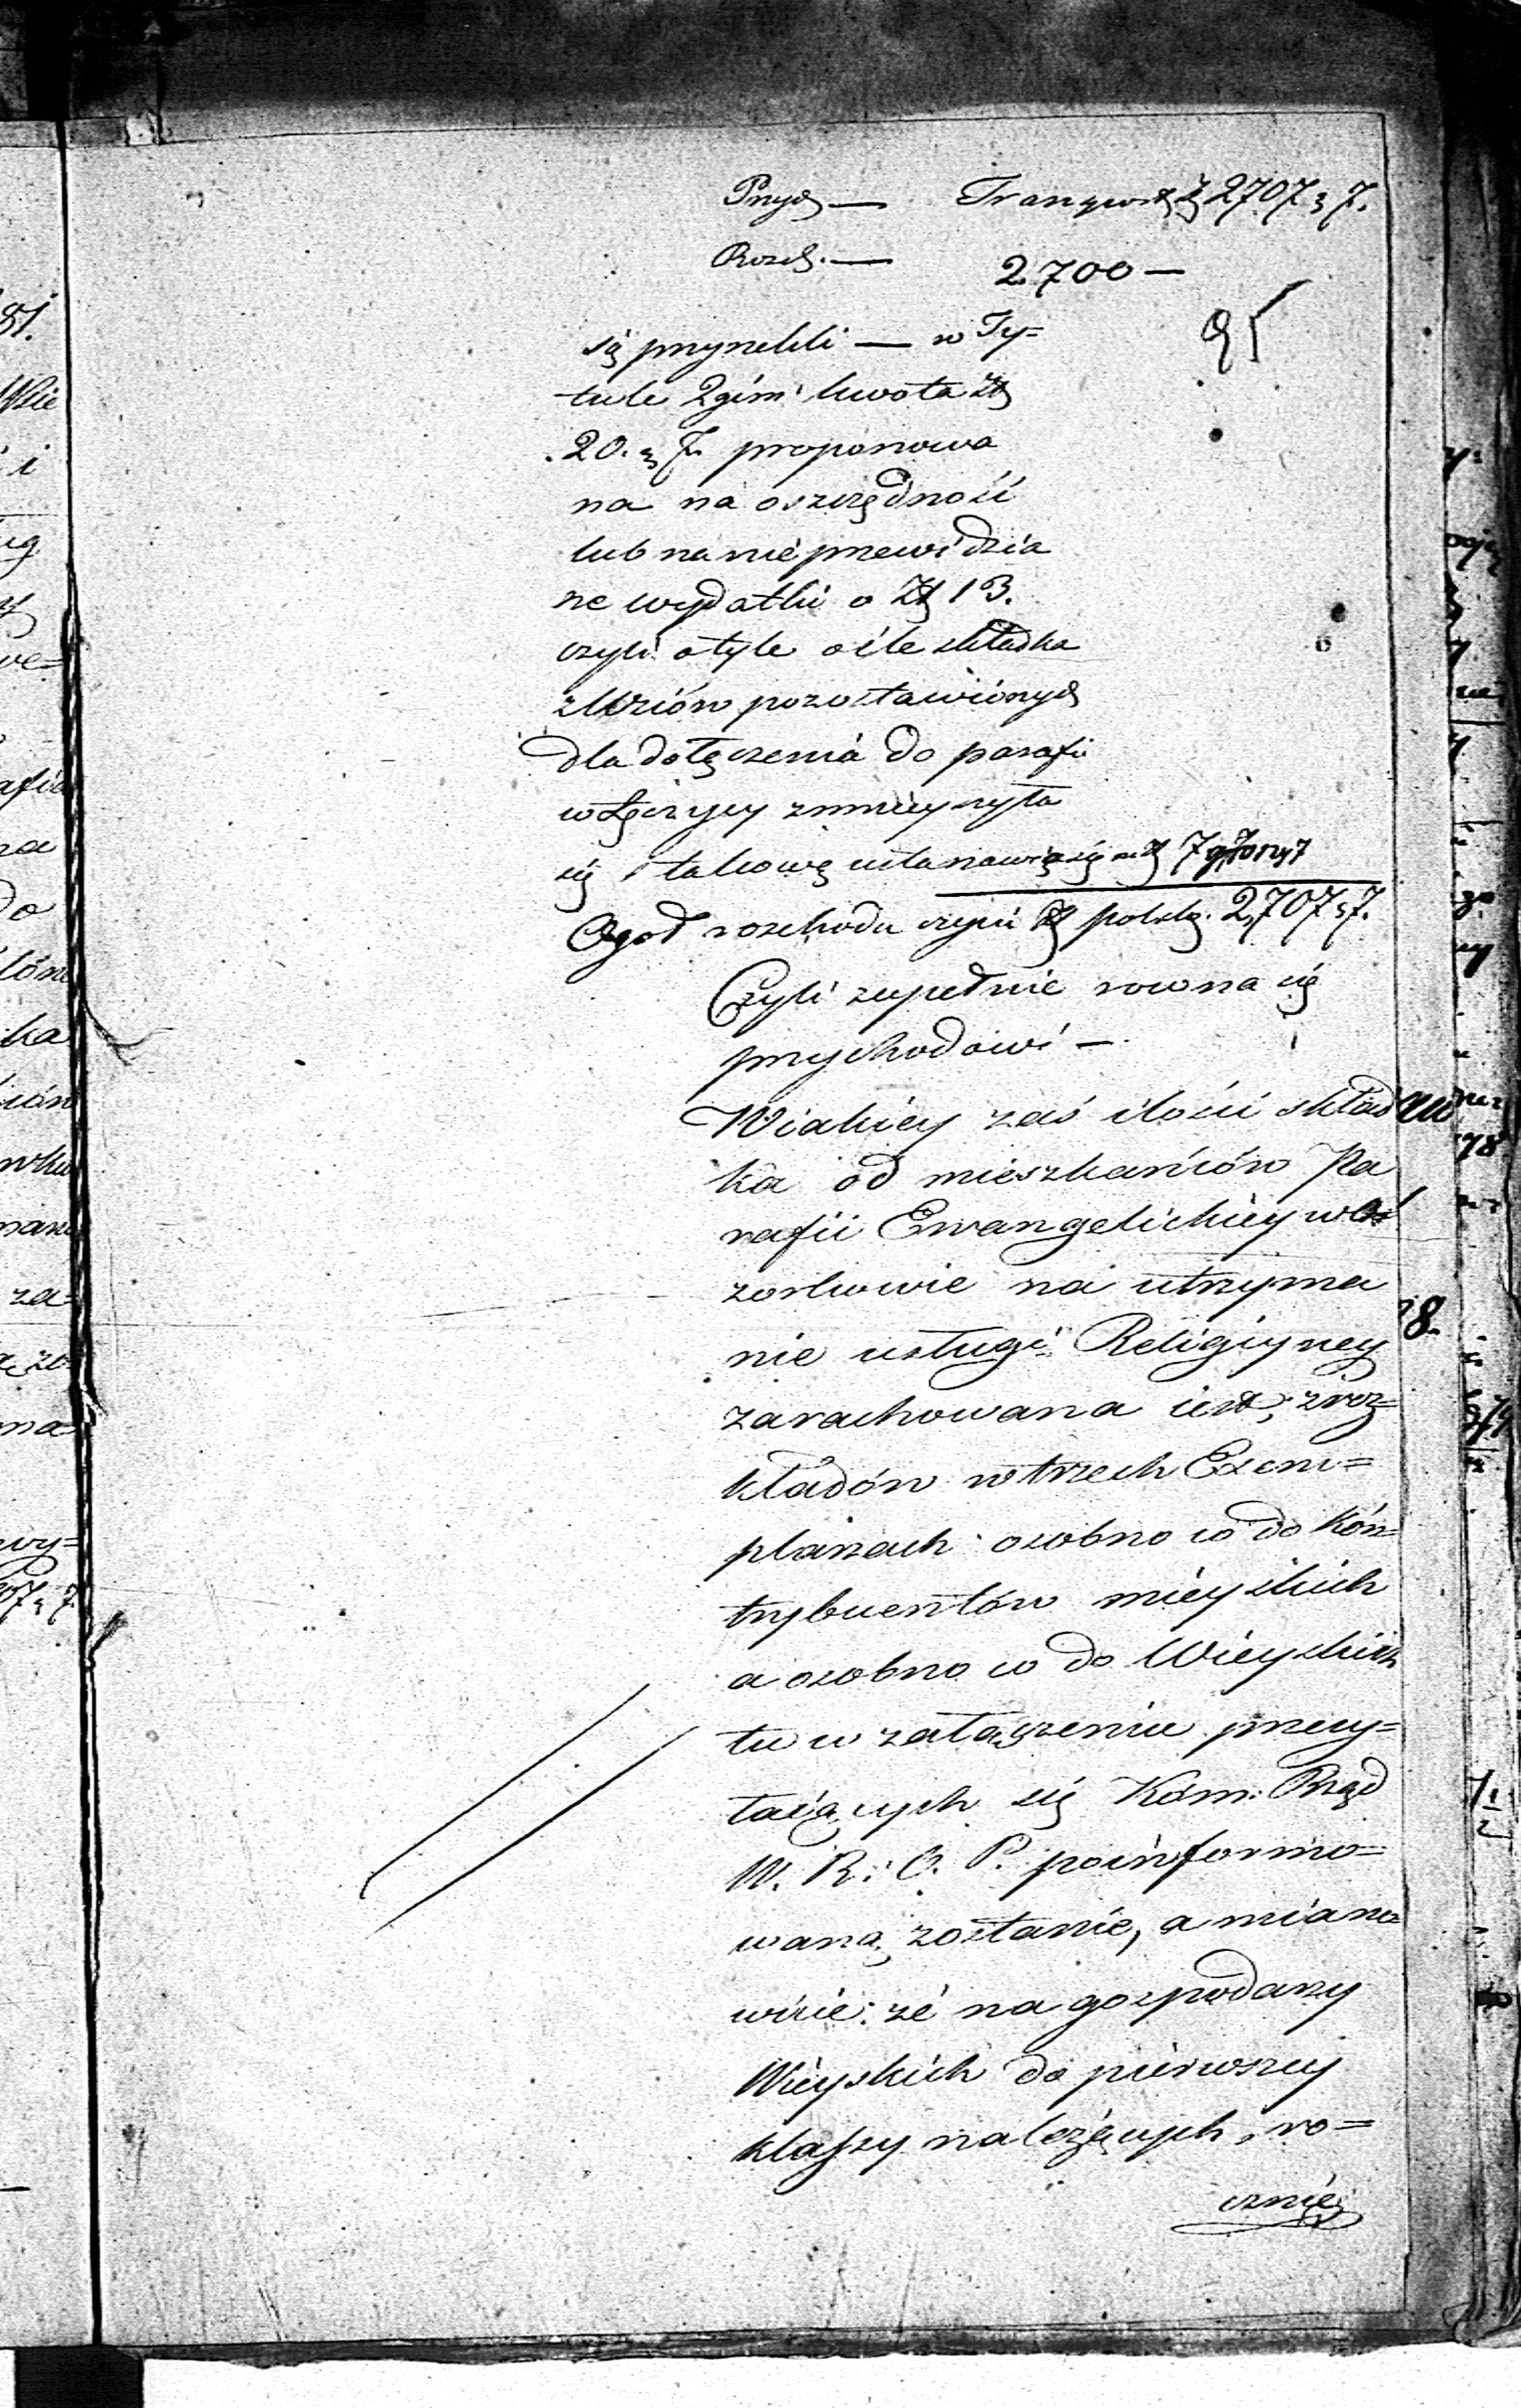 Przych — Transport Zł 2707 g 7.
Rozch. — 2700 —
95
się przyrzekli — w Ty=
tule 2gim kwota Zł
20. g 7. proponowa
na na oszczędność
lub na nieprzewidzia
ne wydatki o Zł 13.
czyli o tyle o ile składka
z Wsiów pozostawionych
dla dołączenia do parafii
w Łęczycy zmnieyszyła
się i takową ustanawia się na Zł 7 groszy 7
Ogoł rozchodu czyni Zł polskich 2,707 g 7.
Czyli zupełnie rowna się
przychodowi —
W iakiey zaś ilości skład
ka od mieszkańców Pa
rafii Ewangelickiey w O
zorkowie na utrzyma
nie usługi Religiyney
zarachowana iest, z roz=
kładów w trzech Exem=
plarzach osobno co do Kon=
trybuentów mieyskich
a osobno co do Wieyskich
tu w załączeniu przey=
taiących się Kom: Rząd
W. R. i O. P. poinformo=
waną zostanie, a miano
wicie: że na gospodarzy
Wieyskich do pierwszey
klassy należących, ro=
cznie